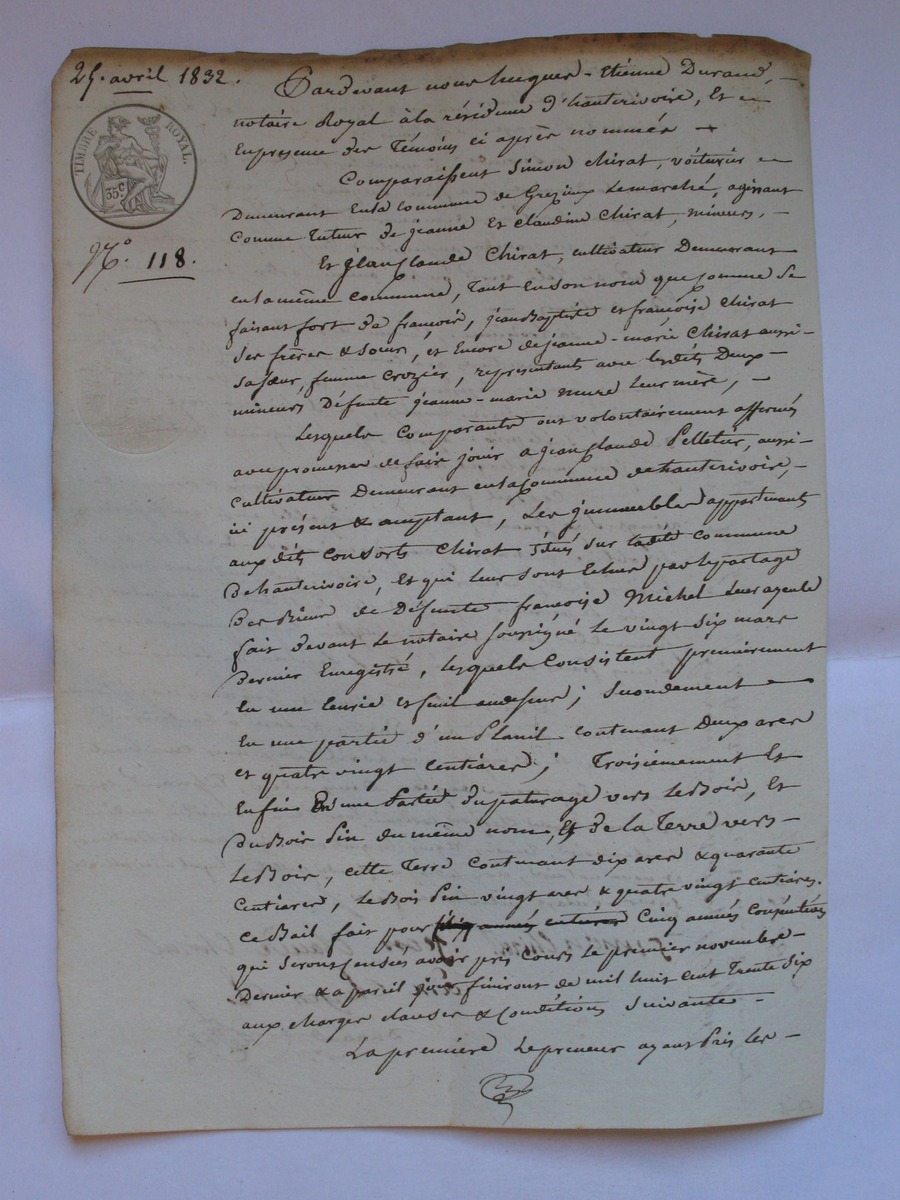 25. avril 1832.
TIMBRE ROYAL.
35c
N.° 118.
Pardevant nous Jucques-Etienne Durand,
notaire Royal à la résidence d'hauterivoire, Et en
En presence des Témoins ci après nommés
Comparaissent Simon Chirat, voiturier
Demeurant En la Commune de Grezieux Lemarché, agissant
Comme tuteur de jeanne Et Claudine Chirat, mineurs,
Et jean Claude Chirat, cultivateur Demeurant
en la même commune, Tant En son nom que Comme Se
faisant fort de françois, jean Baptiste et françoise Chirat
Ses frères & soeur, et Encore de jeanne-marie Chirat aussi
sa soeur, femme Crozier, représentants avec lesdits Deux
mineurs Défunte jeanne-marie mure Leur mère,
Lesquels Comparants ont volontairement affermés
avec promesse de faire jouir a jean Claude Pelletier, aussi
cultivateur Demeurant en la Commune de hauterivoire,
ici présent & acceptant, Les jmmeubles appartenants
auxdits Consorts Chirat situés sur ladite Commune
De hauterivoire, Et qui leur sont Echus par le partage
Des Biens de Défunte françoise Michel Leur ayeule
fait Devant Le notaire soussigné Le vingt six mars
Dernier Enregistré, lesquels Consistent premièrement
En une Ecurie et fenil audessus; Secondement
En une partie d'un Planil contenant Deux ares
et quatre vingt Centiares; Troisièmement Et
Enfin En une Partie Dupaturage vers Le Bois, Et
Du Bois Pin du même nom, Et De la Terre vers
Le Bois, cette Terre Contenant dix ares & quarante
Centiares, le Bois Pin vingt ares & quatre vingt Centiares.
Ce Bail fait pour années entières Cinq années Consécutives
qui Seront Censées avoir pris Cours le premier novembre
Dernier & a pareil jour finiront de mil huit Cent Trente Six
aux charges clauses & Conditions Suivantes
La première Le preneur ayant Pris Les